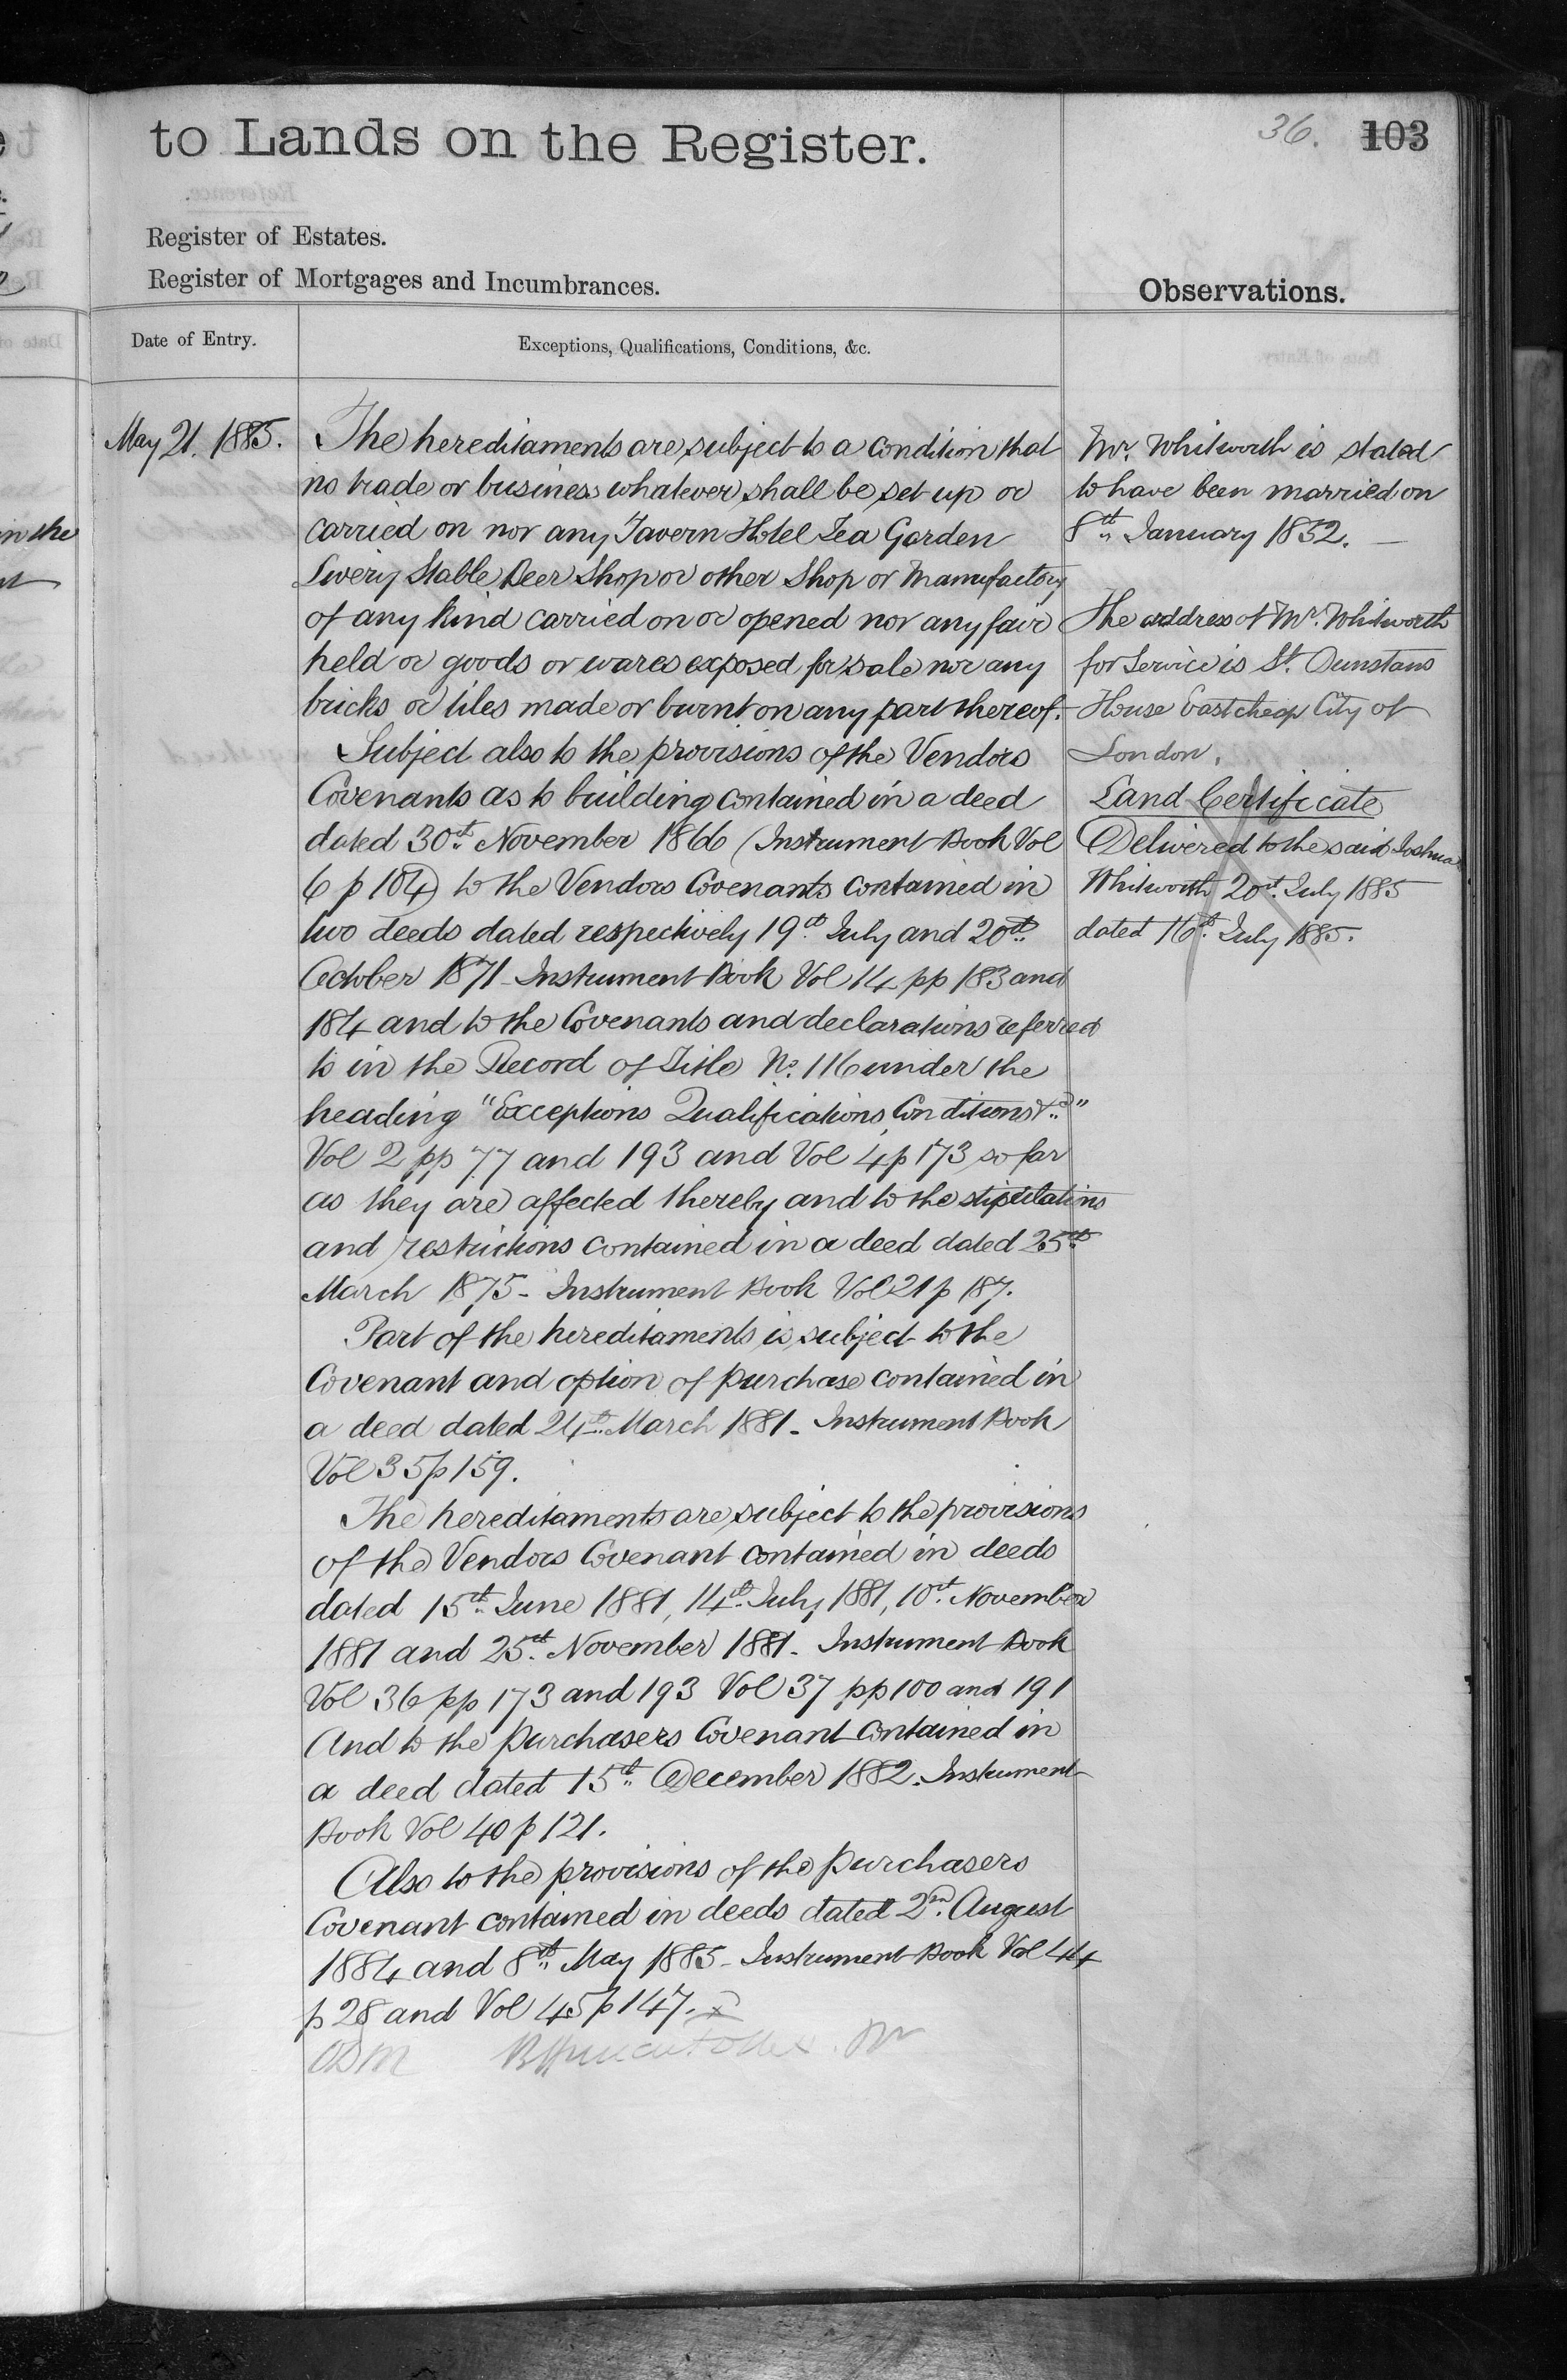 to Lands on the Register.
36. 103
Register of Estates.
Register of Mortgages and Incumbrances.
Observations.
Date of Entry.
Exceptions, Qualifications, Conditions, &c.
May 21. 1885.
The hereditaments are subject to a condition that
no trade or business whatever shall be set up or
carried on nor any Tavern Hotel Tea Garden
Livery Stable Beer Shop or other Shop or Manufactory
of any kind carried on or opened nor any fair
held or goods or wares exposed for sale nor any
bricks or tiles made or burnt on any part thereof.
Subject also to the provisions of the Vendors
Covenants as to building contained in a deed
dated 30th November 1866 (Instrument Book Vol
6 p 104) to the Vendors Covenants contained in
two deeds dated respectively 19th July and 20th
October 1871 - Instrument Book Vol 14 pp 183 and
184 and to the Covenants and declarations referred
to in the Record of Title No. 116 under the
heading "Exceptions Qualifications, Conditions &c"
Vol 2 pp 77 and 193 and Vol 4 p 173 so far
as they are affected thereby and to the stipulations
and restrictions contained in a deed dated 25th
March 1875 - Instrument Book Vol 21 p 187.
Part of the hereditaments is subject to the
Covenant and option of purchase contained in
a deed dated 24th March 1881 - Instrument Book
Vol 35 p 159.
The hereditaments are subject to the provisions
of the Vendors Covenant contained in deeds
dated 15th June 1881, 14th July 1881, 10th November
1881 and 25th November 1881 - Instrument Book
Vol 36 pp 173 and 193 Vol 37 pp 100 and 191
And to the purchasers Covenant contained in
a deed dated 15th December 1882. Instrument
Book Vol 40 p 121.
Also to the provisions of the purchasers
Covenant contained in deeds dated 2nd August
1884 and 8th May 1885 - Instrument Book Vol 44
p 28 and Vol 45 p 147.
Mr. Whitworth is stated
to have been married on
8th January 1832.
The address of Mr. Whitworth
for Service is St. Dunstans
House Eastcheap City of
London.
Land Certificate
Delivered to the said Joshua
Whitworth 20th July 1885
dated 16th July 1885.
in the